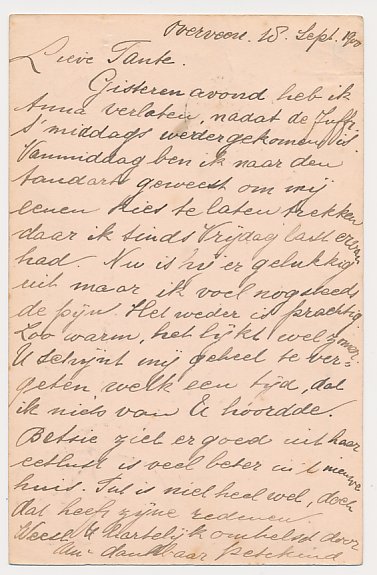 Overveen. 18. Sept. 1900
Lieve Tante.
Gisteren avond heb ik
Anna verlaten, nadat de Juffr.
s' middags wedergekomen is.
Vanmiddag ben ik naar den
tandarts geweest om mij
eenen Kies te laten trekken
daar ik sinds Vrijdag last ervan
had. Nu is hij er gelukkig
uit maar ik voel nog steeds
de pijn. Het weder is prachtig
Zoo warm, het lijkt wel zomer.
U schijnt mij geheel te ver-
geten welk een tijd, dat
ik niets van U hoordde.
Betsie ziet er goed uit haar
eetlust is veel beter in 't nieuwe
huis. Tut is niet heel wel, doch
dat heeft zijne redenen.
Weest U hartelijk omhelsd door
Uw dankbaar Petekind